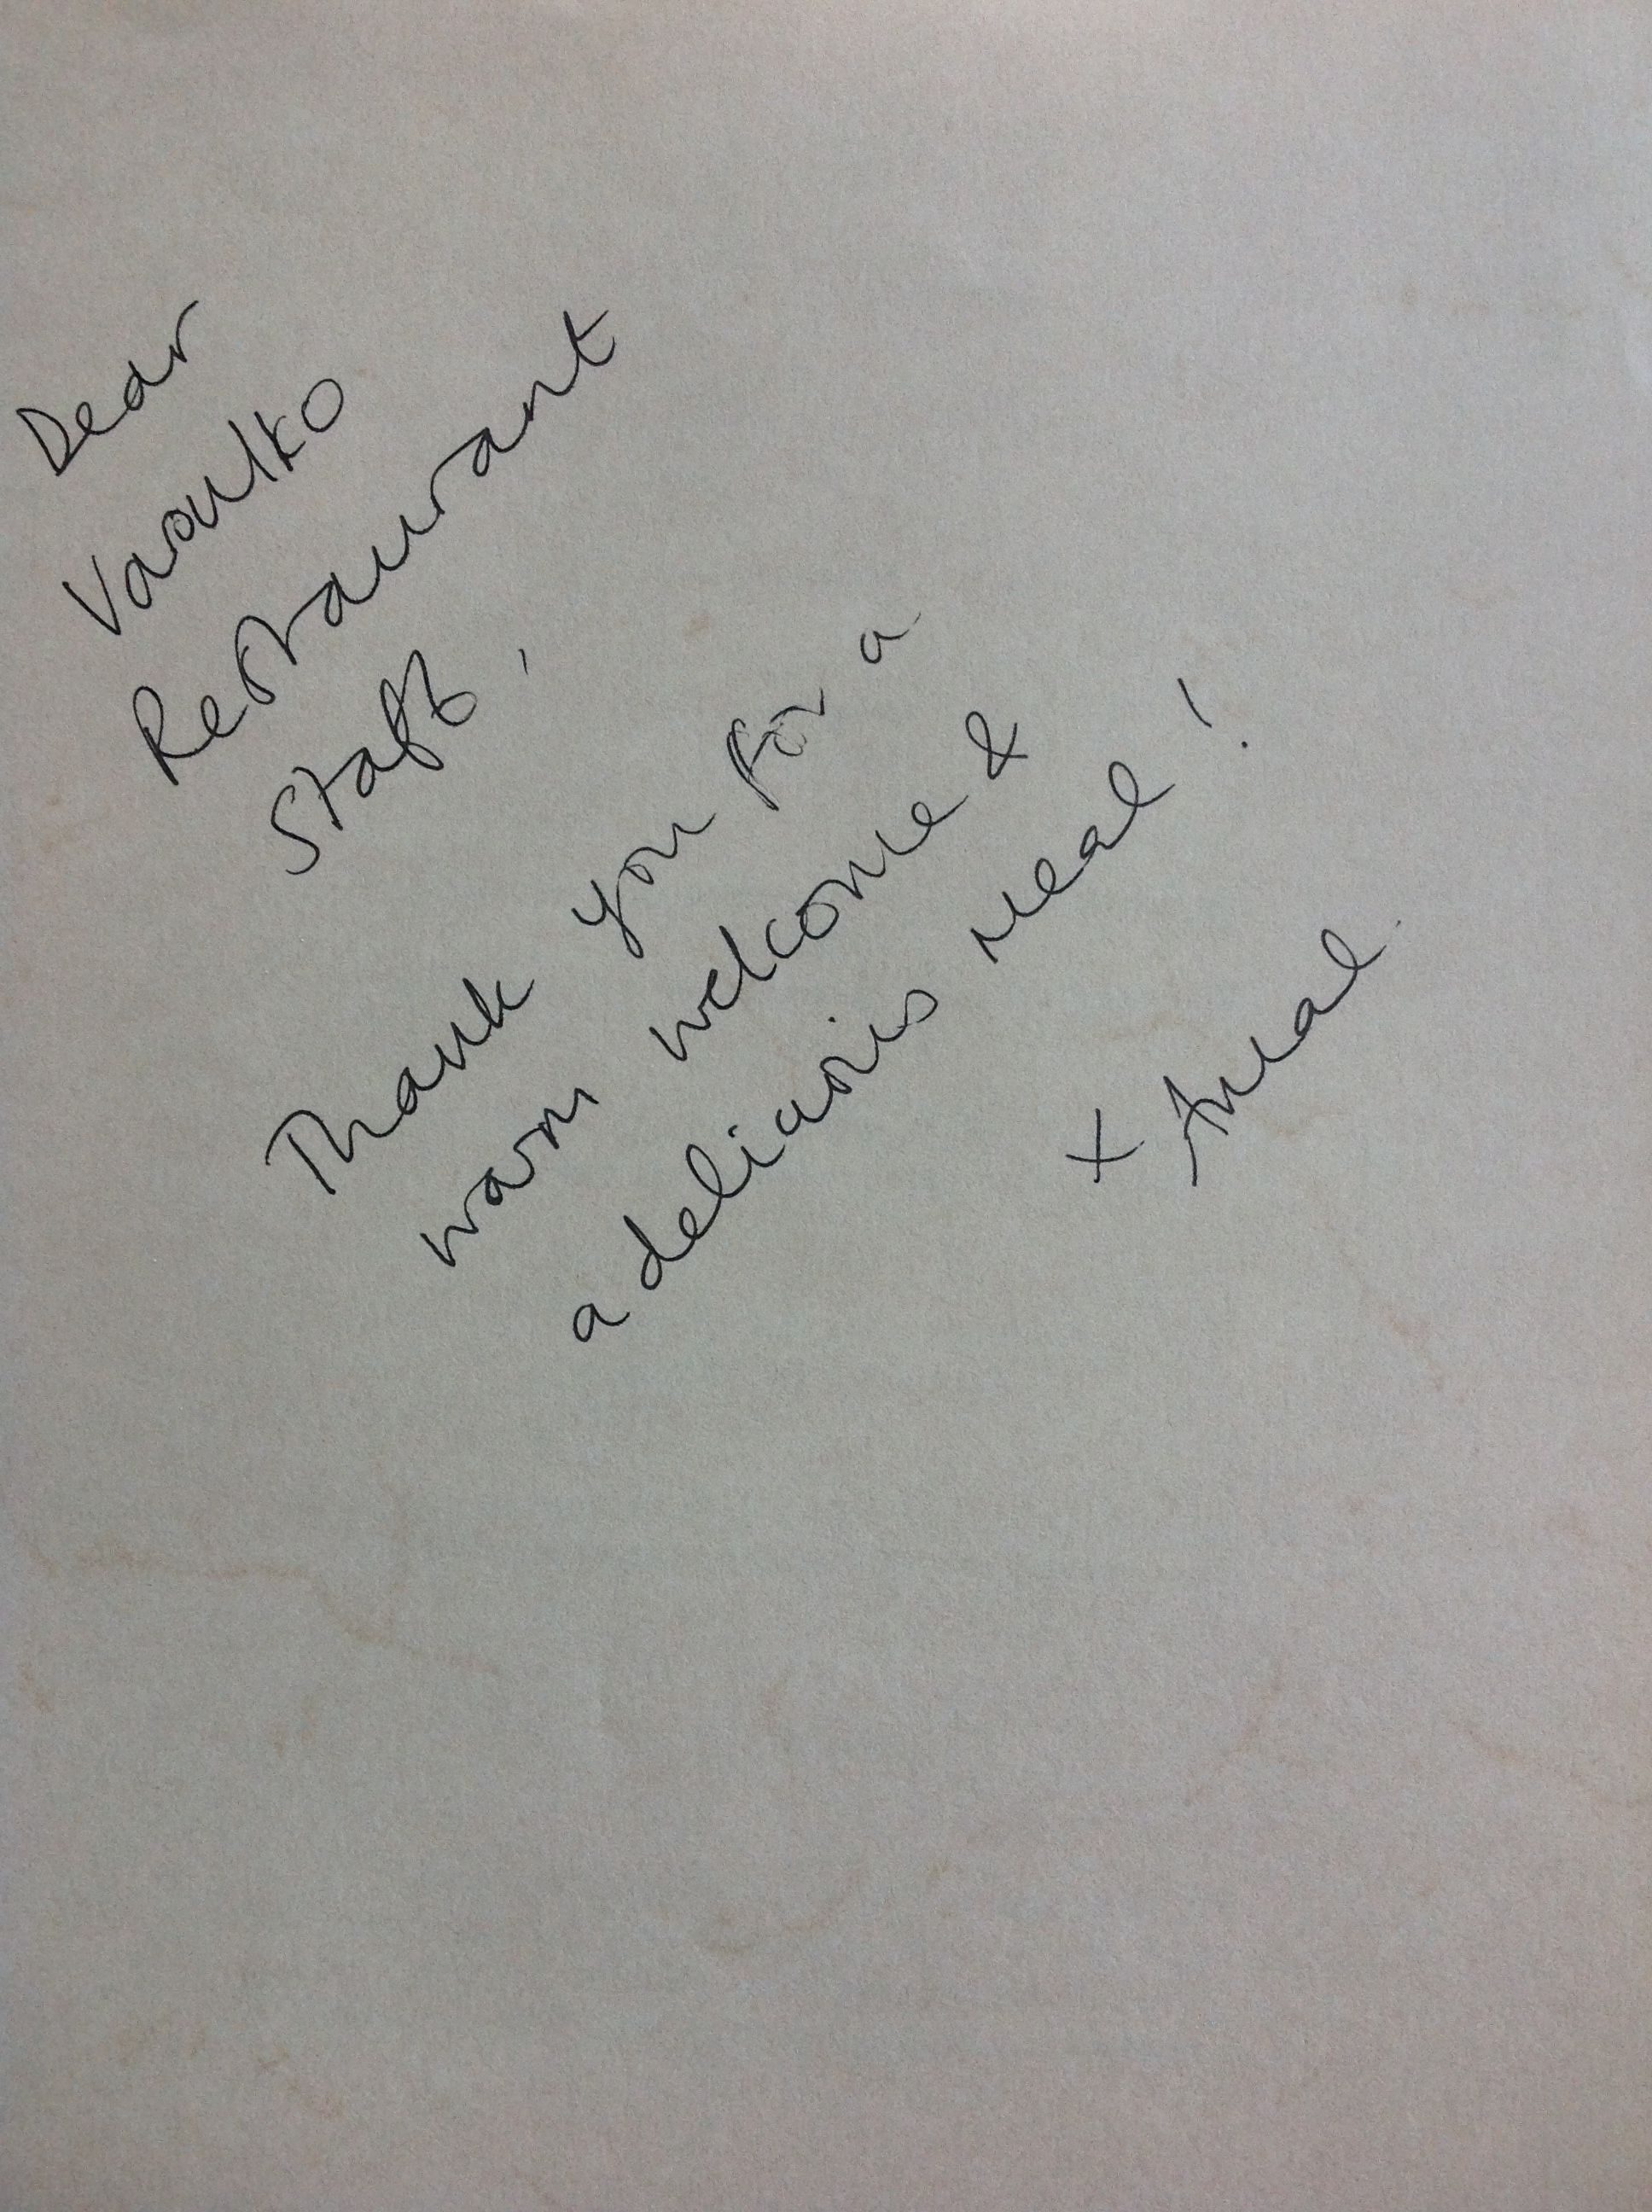 Dear
Varoulko
Restaurant
Staff,
Thank you for a
warm welcome &
a delicious meal!
x Amal.